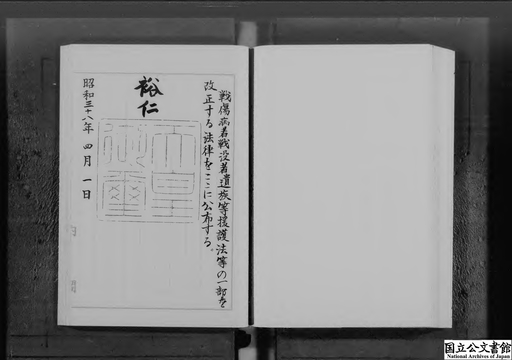 戦傷病者戦没者遺族等援護法等の一部を
改正する法律をここに公布する。
裕仁
天皇
御璽
昭和三十八年四月一日
国立公文書館
National Archives of Japan